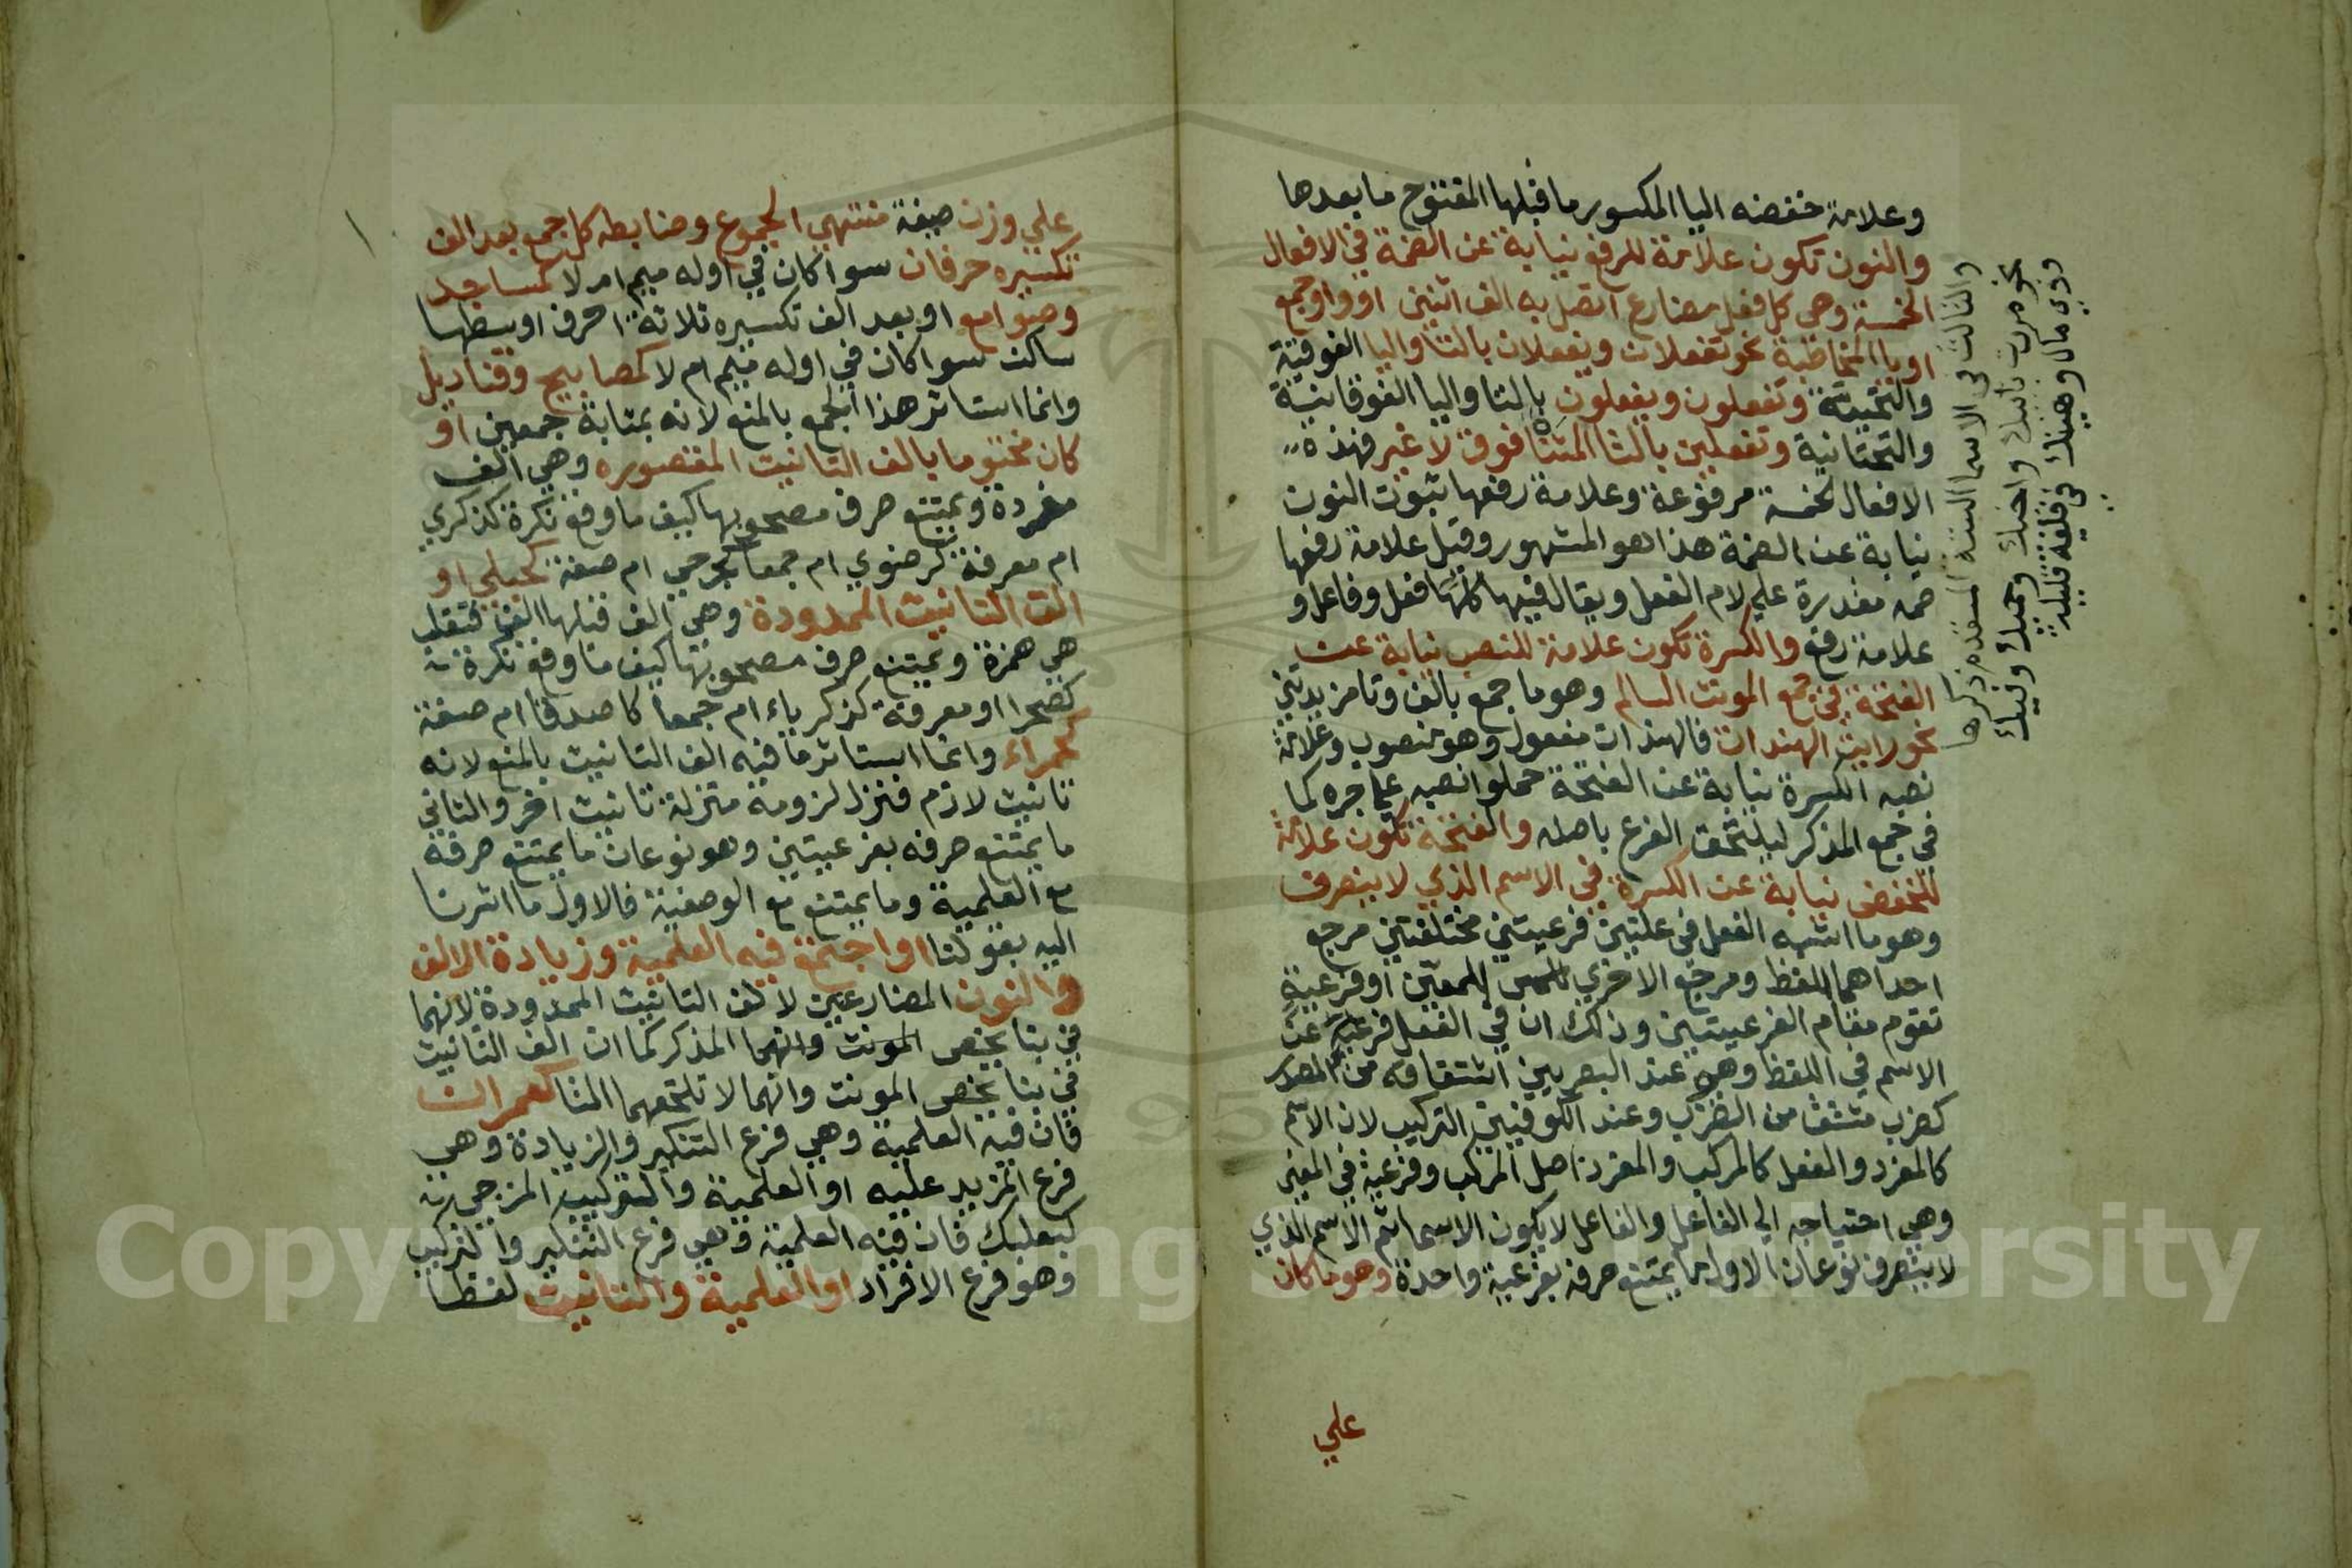 وعلامة خفضه اليا المكسور ما قبلها المفتوح ما بعدها
والنون تكون علامة للرفع نيابة عن الضمة في الافعال
الخمسة وهي كل فعل مضارع اتصل به الف اثنين او واو جمع
او يا المخاطبة نحو تفعلان ويفعلان بالتا واليا الفوقية
والتحتية وتفعلون ويفعلون بالتا واليا الفوقانية
والتحتانية وتفعلين بالتا المثناة فوق لا غير فهذه
الافعال الخمسة مرفوعة وعلامة رفعها ثبوت النون
نيابة عن الضمة هذا هو المشهور وقيل علامة رفعها
ضمه مقدرة علي لام الفعل ويقال فيها كلها فعل وفاعل و
علامة رفع والكسرة تكون علامة للنصب نيابة عن
الفتحة في جمع المونث السالم وهو ما جمع بالف وتا مزيدتين
نحو رايت الهندات فالهندات مفعول وهو منصوب وعلامة
نصبه الكسرة نيابة عن الفتحة حملوا نصبه علي جره كما
في جمع المذكر ليلتحق الفرع باصله والفتحة تكون علامة
للخفض نيابة عن الكسرة في الاسم الذي لا ينصرف
وهو ما اشبه الفعل في علتين فرعيتين مختلفتين مرجع
احداهما اللفظ ومرجع الاخري المعني او فرعية
تقوم مقام الفرعيتين وذلك ان في الفعل فرعية عن
الاسم في اللفظ وهي عند البصريين اشتقاقه من المصدر
كضرب مشتق من الضرب وعند الكوفيين التركيب لان الاسم
كالمفرد والفعل كالمركب والمفرد اصل المركب وفرعية في المعني
وهي احتياجه الي الفاعل والفاعل لا يكون الا اسما ثم الاسم الذي
لا ينصرف نوعان الاول ما يمتنع صرفه بفرعية واحدة وهو ما كان
علي
والثالث في الاسما الستة المتقدم ذكرها
نحو مررت بابيك واخيك وحميك وفيك
وذي مال وهنيك في لغة قليلة
علي وزن صيغة منتهي الجموع وضابطه كل جمع بعد الف
تكسيره حرفان سوا كان في اوله ميم ام لا كمساجد
وصوامع او بعد الف تكسيره ثلاثة احرف اوسطها
ساكن سوا كان في اوله ميم ام لا كمصابيح وقناديل
وانما استاثر هذا الجمع بالمنع لانه بمثابة جمعين او
كان مختوما بالف التانيث المقصوره وهي الف
مفردة ويمتنع صرف مصحوبها كيف ما وقع نكرة كذكري
ام معرفة كرضوي ام جمعا كجرحي ام صفة كحبلي او
الف التانيث الممدودة وهي الف قبلها الف فتقلب
هي همزة ويمتنع صرف مصحوبها كيف ما وقع نكرة
كصحرا او معرفة كذكرياء ام جمعا كاصدقا ام صفة
كحمراء وانما استاثر ما فيه الف التانيث بالمنع لانه
تانيث لازم فنزل لزومه منزلة تانيث اخر والثاني
ما يمتنع صرفه بفرعيتين وهو نوعان ما يمتنع صرفه
مع العلمية وما يمتنع مع الوصفية فالاول ما اشرنا
اليه بقولنا او اجتمع فيه العلمية وزيادة الالف
والنون المضارعين لالف التانيث الممدودة لانهما
في بنا يخص المونث وانهما المذكر كما ان الف التانيث
في بنا يخص المونث وانهما لا تلحقهما التا كعمران
فان فيه العلمية وهي فرع التنكير والزيادة وهي
فرع المزيد عليه او العلمية والتركيب المزجي
كبعلبك فان فيه العلمية وهي فرع التنكير والتركيب
وهو فرع الافراد او العلمية والتانيث لفظا